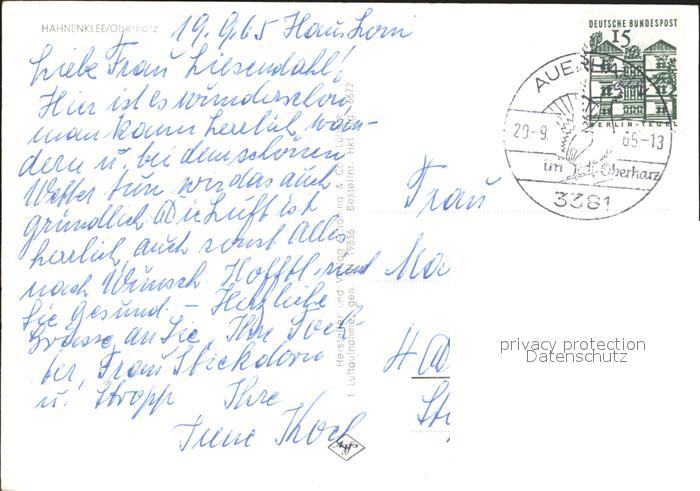 HAHNENKLEE/Oberharz
19.9.65 Haus Horn
Liebe Frau Liesendahl!
Hier ist es wunderschön
man kann herrlich wan-
dern u. bei dem schönen
Wetter tun wir das auch
gründlich Die Luft ist
herlich, auch sonst Alles
nach Wunsch. Hofftl. sind
Sie gesund. – Herzliche
Grüsse an Sie, Ihre Toch-
ter, Frau Stickdorn
u. Stropp Ihre
Irene Koch
Hersteller und Verlag Schöning & Co., Lübeck
Luftaufnahme gen. 19836 Bestellnr. Hkl 6622
Agfa
DEUTSCHE BUNDESPOST
15
BERLIN-TEGEL
20-9. 65-13
im Oberharz
3381
Frau
Ma
4
St
privacy protection
Datenschutz